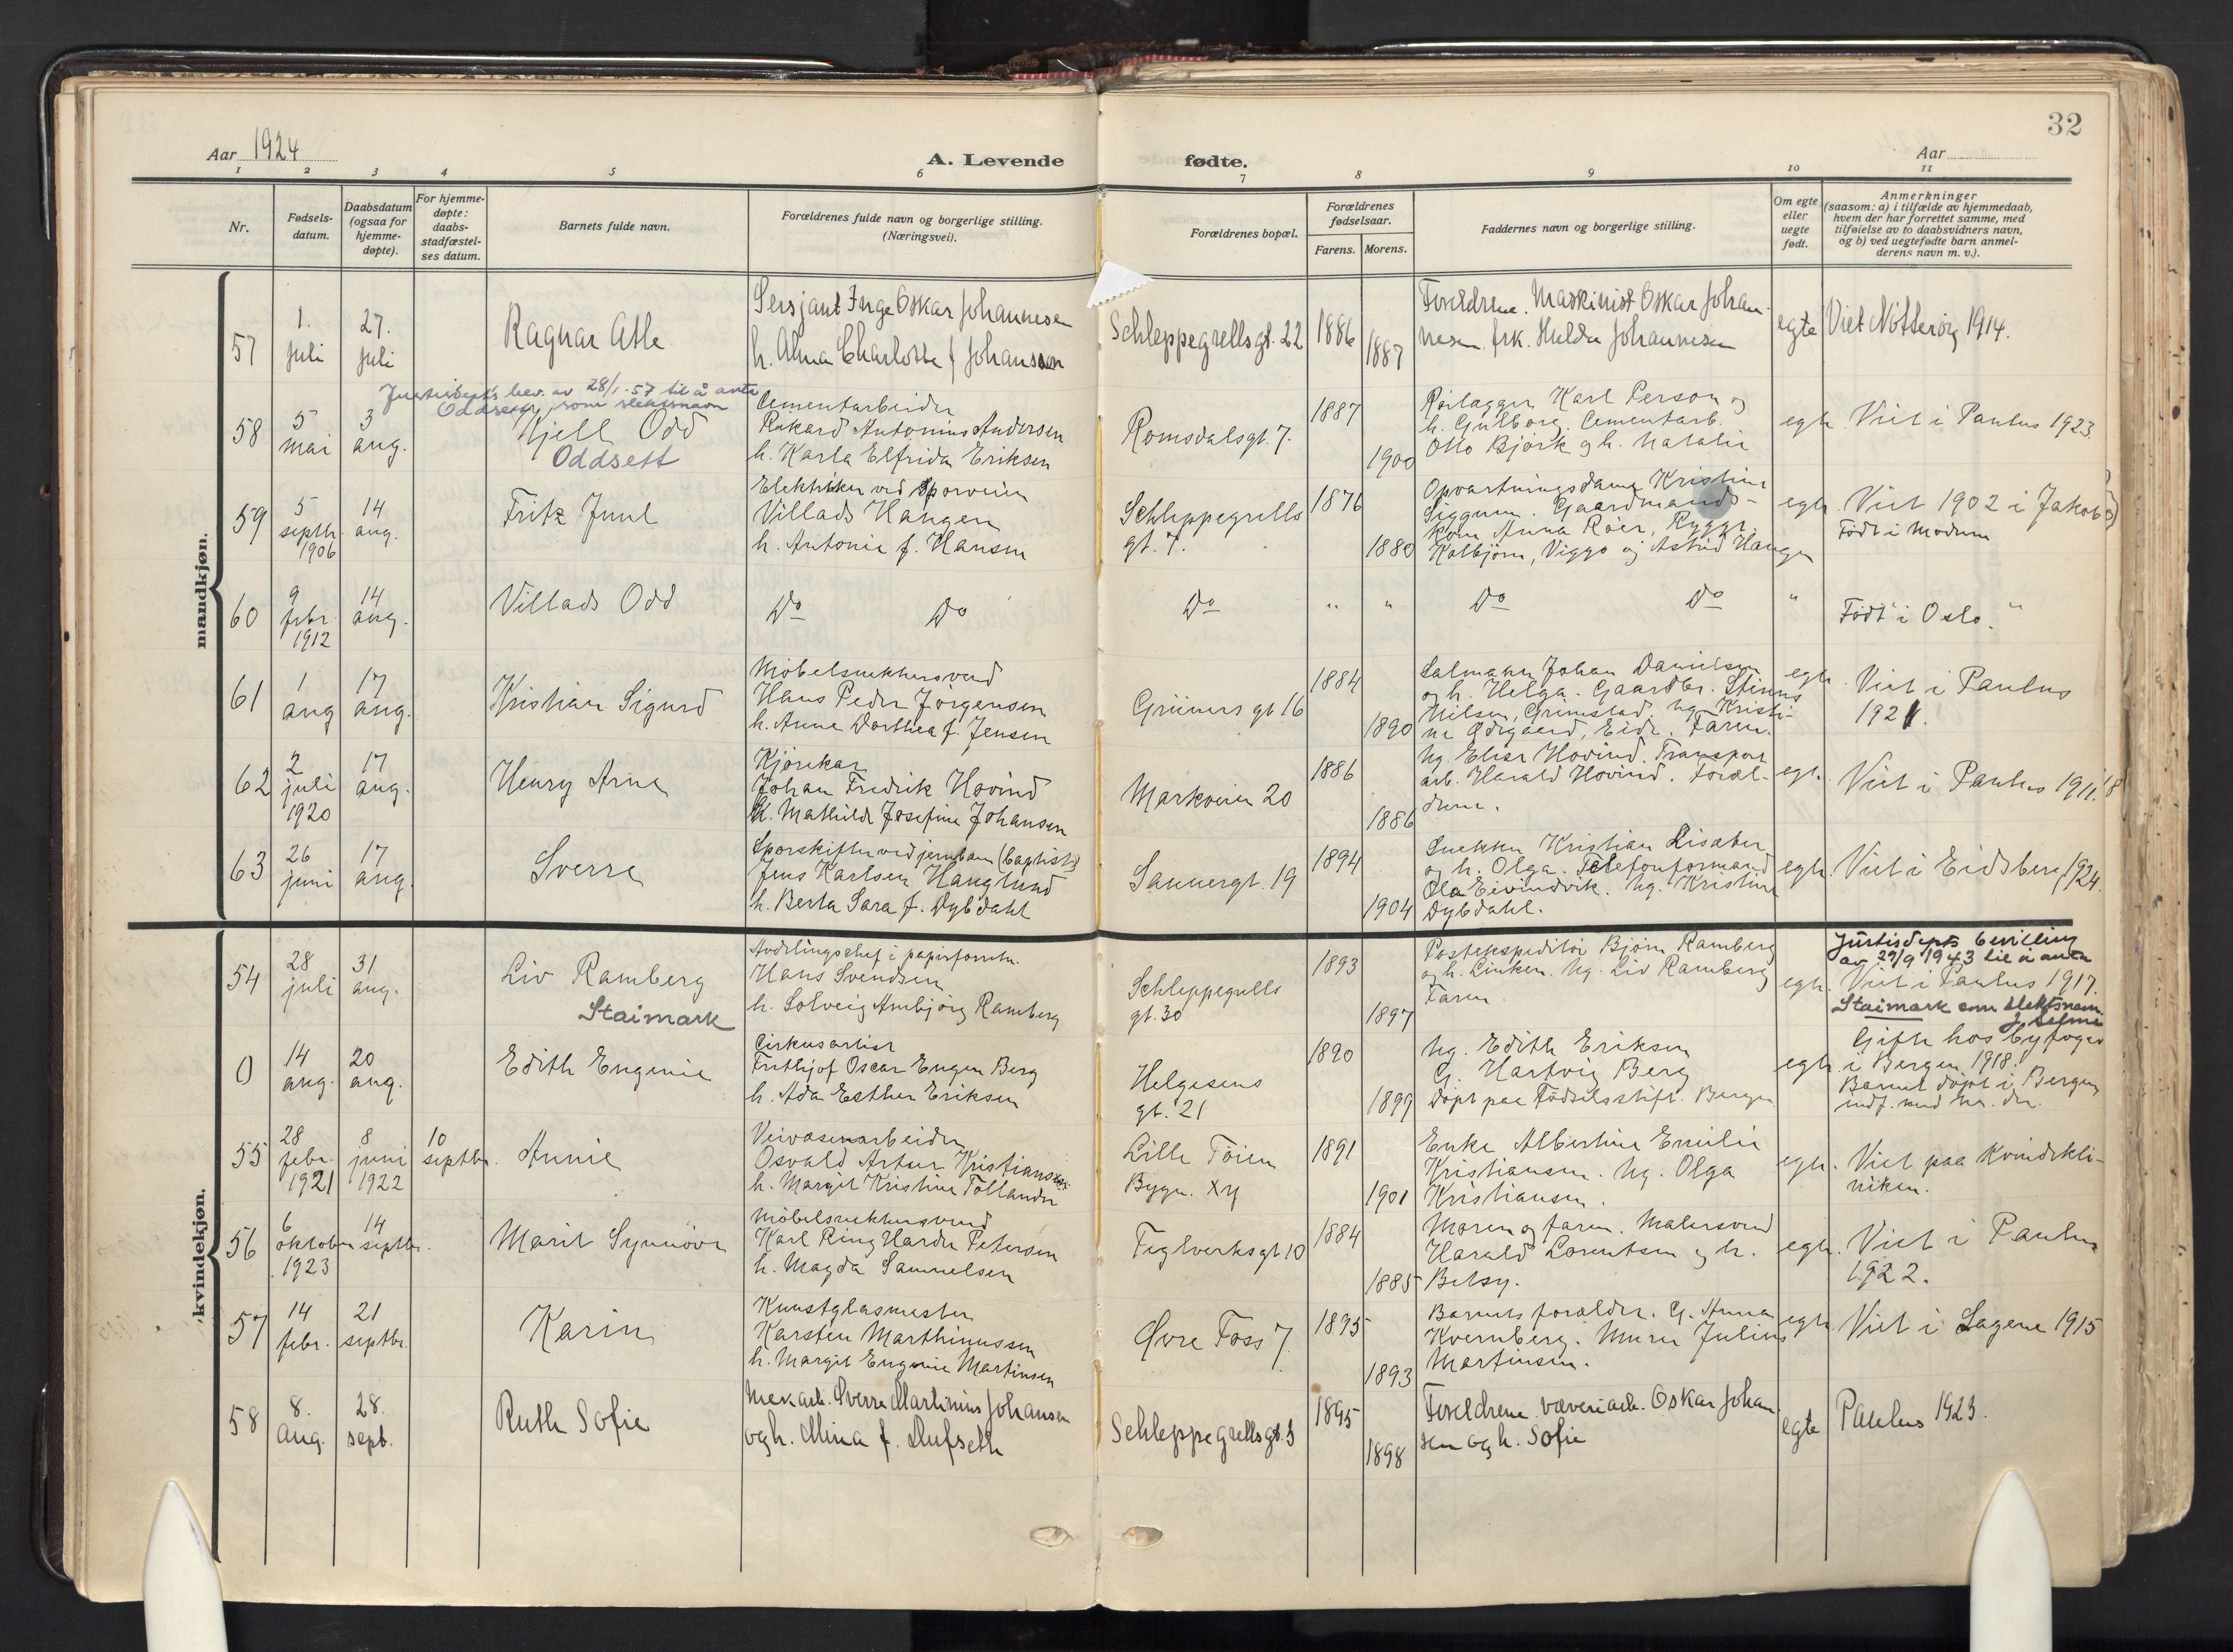 32
Aar 1924
A. Levende fødte.
Aar
1 2 3 4 5 6 7 8 9 10 11
Nr.
Fødsels-
datum.
Daabsdatum
(ogsaa for
hjemme-
døpte).
For hjemme-
døpte:
daabs-
stadfæstel-
ses datum.
Barnets fulde navn.
Forældrenes fulde navn og borgerlige stilling.
(Næringsvei).
Forældrenes bopæl.
Forældrenes
fødselsaar.
Farens. Morens.
Faddernes navn og borgerlige stilling.
Om egte
eller
uegte
født.
Anmerkninger
(saasom: a) i tilfælde av hjemmedaab,
hvem der har forrettet samme, med
tilføielse av to daabsvidners navn,
og b) ved uegtefødte barn anmel-
derens navn m. v.).
mandkjøn.
57
1.
juli
27.
juli
Ragnar Atle
Sersjant Inge Oskar Johannesen
h. Alma Charlotte f Johansson
Schleppegrellsgt. 22
1886
1887
Foreldrene. Maskinist Oskar Johan-
nesen, frk. Hulda Johannesen
egte
Viet Nøtterøy 1914.
Justisdepts bev. av 28/1-57 til å anta
Oddsett som slektsnavn
58
5
mai
3
aug.
Kjell Odd
Oddsett
Cementarbeider
Rikard Antonius Andersen
h. Karla Elfrida Eriksen
Romsdalsgt. 7.
1887
1900
Rørlægger Karl Person og
h. Gulborg. Cementarb.
Otto Bjørk og h. Natalie
egte.
Viet i Paulus 1923.
59
5
septbr.
1906
14
aug.
Fritz Juul
Elektriker ved Sporveien
Villads Haugen
h. Antonie f. Hansen
Schleppegrells
gt. 7.
1876
1880
Opvartningsdame Kristine
Siggum. Gaardmands-
kone Anna Røer, Rygge.
Kolbjørn, Viggo og Astrid Haugen
egte.
Viet 1902 i Jakob
Født i Modum
60
9
febr.
1912
14
aug.
Villads Odd
Do Do
Do
" "
Do Do
"
Født i Oslo. "
61
1
aug
17
aug.
Kristian Sigurd
Møbelsnekkersvend
Hans Peder Jørgensen
h. Anne Dorthea f. Jensen
Grüners gt 16
1884
1890
Salmaker Johan Danielsen
og h. Helga. Gaardbr. Stinus
Nilsen, Grimstad. Ug. Kristi-
ne Ødegaard, Eide. Faren.
egte.
Viet i Paulus
1921.
62
2
juli
1920
17
aug.
Henry Arne
Kjørekar
Johan Fredrik Hovind
h. Mathilde Josefine Johansen
Markveien 20
1886
1886
Ug. Elise Hovind. Transport
arb. Harald Hovind. Foræl-
drene.
egte.
Viet i Paulus 1911.
63
26
juni
17
aug.
Sverre
Sporskifter ved jernbanen (baptist)
Jens Karlsen Hauglund
h. Berta Sara f. Dybdahl
Sannergt. 19
1894
1904
Snekker Kristian Lisæter
og h. Olga. Telefonformand
Ola Eivindvik. Ug. Kristine
Dybdahl.
egte.
Viet i Eidsberg 1924.
kvindekjøn.
54
28
juli
31
aug.
Liv Ramberg
Staimark
Avdelingschef i papirforretn.
Hans Svendsen
h. Solveig Ambjørg Ramberg
Schleppegrells
gt. 30
1893
1897
Postekspeditør Bjørn Ramberg
og h. Linken. Ug. Liv Ramberg
Faren.
egte.
Justisdepts bevilling
av 29/9 1943 til å anta
Viet i Paulus 1917.
Staimark som slektsnavn.
0
14
aug.
20
aug.
Edith Eugenie
Cirkusartist
Frithjof Oscar Eugen Berg
h. Ada Esther Eriksen
Helgesens
gt. 21
1890
1899
Ug. Edith Eriksen
G. Hartvig Berg
Døpt paa Fødselsstift. Bergen
egte.
Gifte hos byfoged
i Bergen 1918.
Barnet døpt i Bergen
indf. med nr. der.
55
28
febr.
1921
8
juni
1922
10
septbr.
Annie
Veivæsenarbeider
Osvald Artur Kristiansen
h. Margit Kristine Tollander
Lille Tøien
Bygn. XY
1891
1901
Enke Albertine Emilie
Kristiansen. Ug. Olga
Kristiansen.
egte.
Viet paa Kvindekli-
niken.
56
6
oktober
1923
14
septbr.
Marit Synnøve
Møbelsnekkersvend
Karl Ring Harder Petersen
h. Magda Samuelsen
Teglverksgt 10
1884
1885
Moren og faren. Malersvend
Harald Lorentsen og h.
Betsy.
egte.
Viet i Paulus
1922.
57
14
febr.
21
septbr.
Karin
Kunstglasmester
Karsten Marthinussen
h. Margit Eugenie Martinsen
Øvre Foss 7.
1895
1893
Barnets forældre. G. Anna
Kvernberg. Murer Julius
Martinsen.
egte.
Viet i Sagene 1915
58
8.
aug.
28.
sept.
Ruth Sofie
Mek arb. Sverre Martinius Johansen
og h. Mina f. Dufseth
Schleppegrellsgt. 3
1895
1898
Foreldrene. væveriarb. Oskar Johan-
sen og h. Sofie
egte
Paulus 1923.